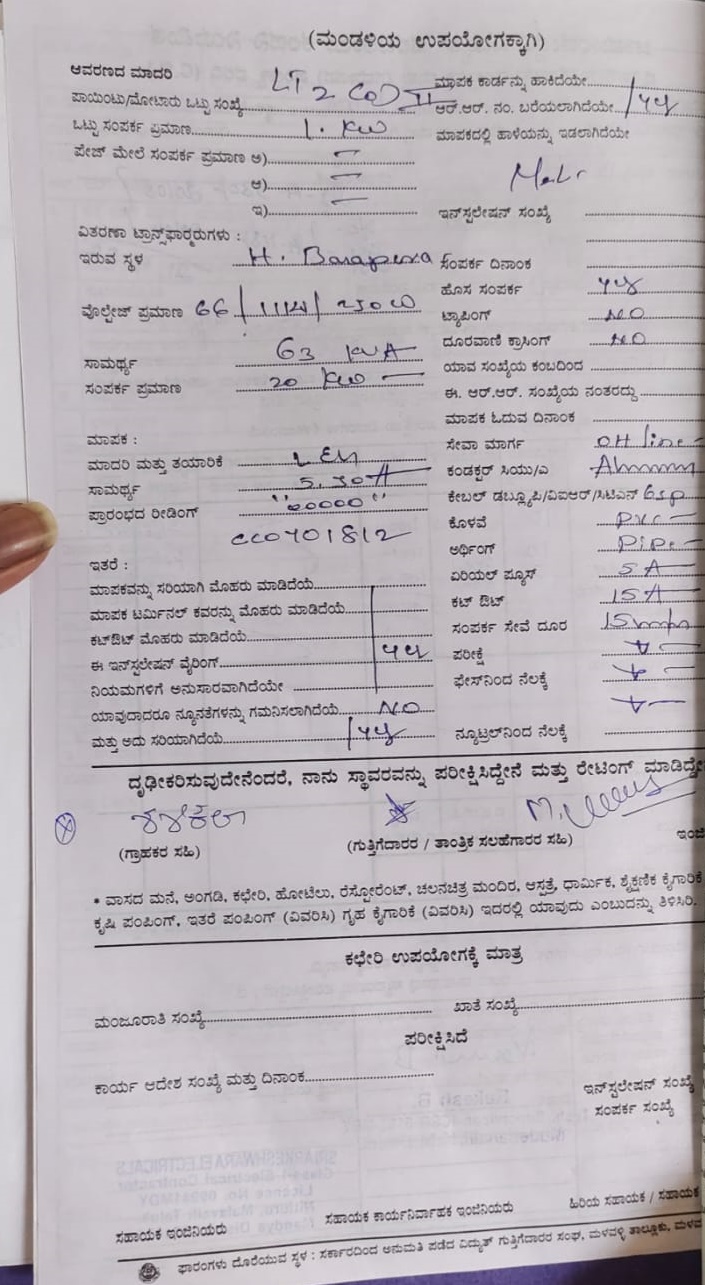 (ಮಂಡಳಿಯ ಉಪಯೋಗಕ್ಕಾಗಿ)
ಆವರಣದ ಮಾದರಿ
ಮಾಪಕ ಕಾರ್ಡನ್ನು ಹಾಕಿದೆಯೇ
ಪಾಯಿಂಟು/ಮೋಟಾರು ಒಟ್ಟು ಸಂಖ್ಯೆ LT2
ಆರ್.ಆರ್. ನಂ. ಬರೆಯಲಾಗಿದೆಯೇ
ಒಟ್ಟು ಸಂಪರ್ಕ ಪ್ರಮಾಣ 1. KW
ಮಾಪಕದಲ್ಲಿ ಹಾಳೆಯನ್ನು ಇಡಲಾಗಿದೆಯೇ
ಪೇಜ್ ಮೇಲೆ ಸಂಪರ್ಕ ಪ್ರಮಾಣ ಅ)
ಆ)
ಇ)
ಇನ್‌ಸ್ಟಲೇಷನ್ ಸಂಖ್ಯೆ
ವಿತರಣಾ ಟ್ರಾನ್ಸ್‌ಫಾರ್ಮರುಗಳು :
ಇರುವ ಸ್ಥಳ H.
ಸಂಪರ್ಕ ದಿನಾಂಕ
ಹೊಸ ಸಂಪರ್ಕ
ವೊಲ್ಟೇಜ್ ಪ್ರಮಾಣ 66 /
ಟ್ಯಾಪಿಂಗ್ NO
ದೂರವಾಣಿ ಕ್ರಾಸಿಂಗ್ NO
ಸಾಮರ್ಥ್ಯ 63 KVA
ಯಾವ ಸಂಖ್ಯೆಯ ಕಂಬದಿಂದ
ಸಂಪರ್ಕ ಪ್ರಮಾಣ 20 KW
ಈ. ಆರ್.ಆರ್. ಸಂಖ್ಯೆಯ ನಂತರದ್ದು
ಮಾಪಕ ಓದುವ ದಿನಾಂಕ
ಮಾಪಕ :
ಸೇವಾ ಮಾರ್ಗ OH line
ಮಾದರಿ ಮತ್ತು ತಯಾರಿಕೆ
ಕಂಡಕ್ಟರ್ ಸಿಯು/ಎ
ಸಾಮರ್ಥ್ಯ 5.30A
ಕೇಬಲ್ ಡಬ್ಲ್ಯೂಪಿ/ವಿಐಆರ್/ಸಿಟಿಎಸ್
ಪ್ರಾರಂಭದ ರೀಡಿಂಗ್ "00000"
ಕೊಳವೆ PVC
ಅರ್ಥಿಂಗ್ Pipe
ಇತರೆ :
ಏರಿಯಲ್ ಪ್ಯೂಸ್ 5 A
ಮಾಪಕವನ್ನು ಸರಿಯಾಗಿ ಮೊಹರು ಮಾಡಿದೆಯೆ
ಕಟ್ ಔಟ್ 15 A
ಮಾಪಕ ಟರ್ಮಿನಲ್ ಕವರನ್ನು ಮೊಹರು ಮಾಡಿದೆಯೆ
ಸಂಪರ್ಕ ಸೇವೆ ದೂರ
ಕಟ್‌ಔಟ್ ಮೊಹರು ಮಾಡಿದೆಯೆ
ಪರೀಕ್ಷೆ
ಈ ಇನ್‌ಸ್ಟಲೇಷನ್ ವೈರಿಂಗ್
ಫೇಸ್‌ನಿಂದ ನೆಲಕ್ಕೆ
ನಿಯಮಗಳಿಗೆ ಅನುಸಾರವಾಗಿದೆಯೇ
ಯಾವುದಾದರೂ ನ್ಯೂನತೆಗಳನ್ನು ಗಮನಿಸಲಾಗಿದೆಯೆ NO
ಮತ್ತು ಅದು ಸರಿಯಾಗಿದೆಯೆ
ನ್ಯೂಟ್ರಲ್‌ನಿಂದ ನೆಲಕ್ಕೆ
ದೃಢೀಕರಿಸುವುದೇನೆಂದರೆ, ನಾನು ಸ್ಥಾವರವನ್ನು ಪರೀಕ್ಷಿಸಿದ್ದೇನೆ ಮತ್ತು ರೇಟಿಂಗ್ ಮಾಡಿದ್ದೇ
(ಗ್ರಾಹಕರ ಸಹಿ)
(ಗುತ್ತಿಗೆದಾರರ / ತಾಂತ್ರಿಕ ಸಲಹೆಗಾರರ ಸಹಿ)
* ವಾಸದ ಮನೆ, ಅಂಗಡಿ, ಕಛೇರಿ, ಹೋಟೆಲು, ರೆಸ್ಟೋರೆಂಟ್, ಚಲನಚಿತ್ರ ಮಂದಿರ, ಆಸ್ಪತ್ರೆ, ಧಾರ್ಮಿಕ, ಶೈಕ್ಷಣಿಕ ಕೈಗಾರಿಕೆ
ಕೃಷಿ ಪಂಪಿಂಗ್, ಇತರೆ ಪಂಪಿಂಗ್ (ವಿವರಿಸಿ) ಗೃಹ ಕೈಗಾರಿಕೆ (ವಿವರಿಸಿ) ಇದರಲ್ಲಿ ಯಾವುದು ಎಂಬುದನ್ನು ತಿಳಿಸಿರಿ.
ಕಛೇರಿ ಉಪಯೋಗಕ್ಕೆ ಮಾತ್ರ
ಮಂಜೂರಾತಿ ಸಂಖ್ಯೆ
ಖಾತೆ ಸಂಖ್ಯೆ
ಪರೀಕ್ಷಿಸಿದೆ
ಕಾರ್ಯ ಆದೇಶ ಸಂಖ್ಯೆ ಮತ್ತು ದಿನಾಂಕ
ಇನ್‌ಸ್ಟಲೇಷನ್ ಸಂಖ್ಯೆ
ಸಂಪರ್ಕ ಸಂಖ್ಯೆ
ಸಹಾಯಕ ಇಂಜಿನಿಯರು
ಸಹಾಯಕ ಕಾರ್ಯನಿರ್ವಾಹಕ ಇಂಜಿನಿಯರು
ಹಿರಿಯ ಸಹಾಯಕ / ಸಹಾಯಕ
ಫಾರಂಗಳು ದೊರೆಯುವ ಸ್ಥಳ : ಸರ್ಕಾರದಿಂದ ಅನುಮತಿ ಪಡೆದ ವಿದ್ಯುತ್ ಗುತ್ತಿಗೆದಾರರ ಸಂಘ, ಮಳವಳ್ಳಿ ತಾಲ್ಲೂಕು, ಮಳವ